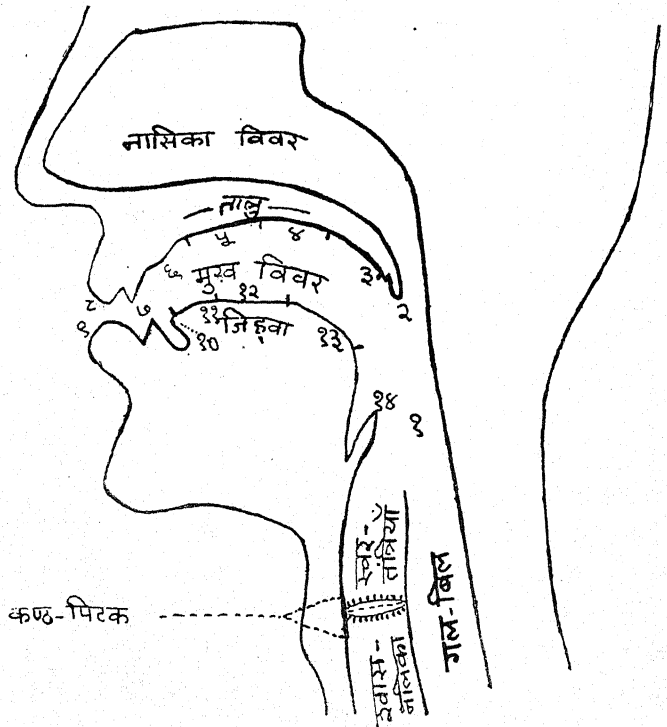 नासिका विवर
तालु
५ ४
६ मुख विवर ३
२
८ ७ १२
९ ११ जिह्वा
१० १३
१४
१
स्वर-
तंत्रियाँ
गल-बिल
कण्ठ-पिटक
श्वास-
नलिका